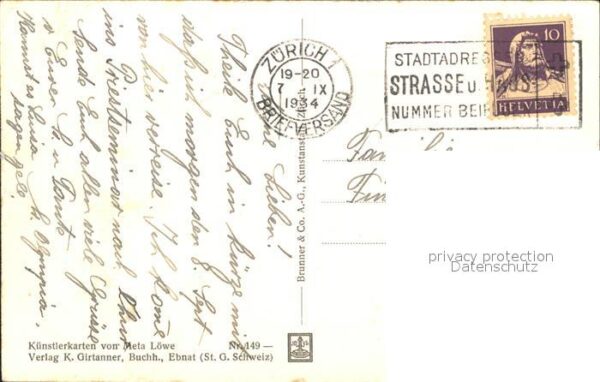 ZÜRICH 1
19-20
7 IX
1934
BRIEFVERSAND
STADTADRES
STRASSE U. HAUS
NUMMER BEIF
10
HELVETIA
Lieben!
Theile Euch in Kürze mit
daß ich morgen den 8. Sept
von hier verreise. Ich kome
ins Priesterseminar nach Chur
Sende Euch allen viele Grüsse
v Eurer
Olympia.
Brunner & Co. A.-G., Kunstanstalt, Zürich
Künstlerkarten von Meta Löwe Nr. 149 —
Verlag K. Girtanner, Buchh., Ebnat (St. G. Schweiz)
privacy protection
Datenschutz